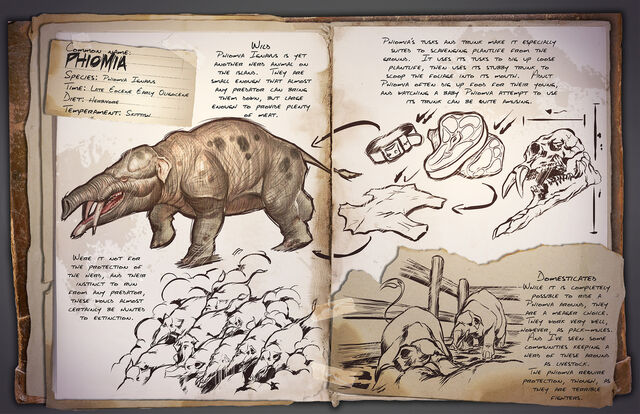 Common name:
Phiomia
Species: Phiomia Ignavus
Time: Late Eocene Early Oligocene
Diet: Herbivore
Temperament: Skittish
Wild
Phiomia Ignavus is yet
another herd animal on
the island. They are
small enough that almost
any predator can bring
them down, but large
enough to provide plenty
of meat.
Were it not for
the protection of
the herd, and their
instinct to run
from any predator,
these would almost
certainly be hunted
to extinction.
Phiomia's tusks and trunk make it especially
suited to scavenging plantlife from the
ground. It uses its tusks to dig up loose
plantlife, then uses its stubby trunk to
scoop the foliage into its mouth. Adult
Phiomia often dig up food for their young,
and watching a baby Phiomia attempt to use
its trunk can be quite amusing.
Domesticated
While it is completely
possible to ride a
Phiomia around, they
are a meager choice.
They work very well,
however, as pack-mules.
And I've seen some
communities keeping a
herd of these around
as livestock.
The phiomia require
protection, though, as
they are terrible
fighters.